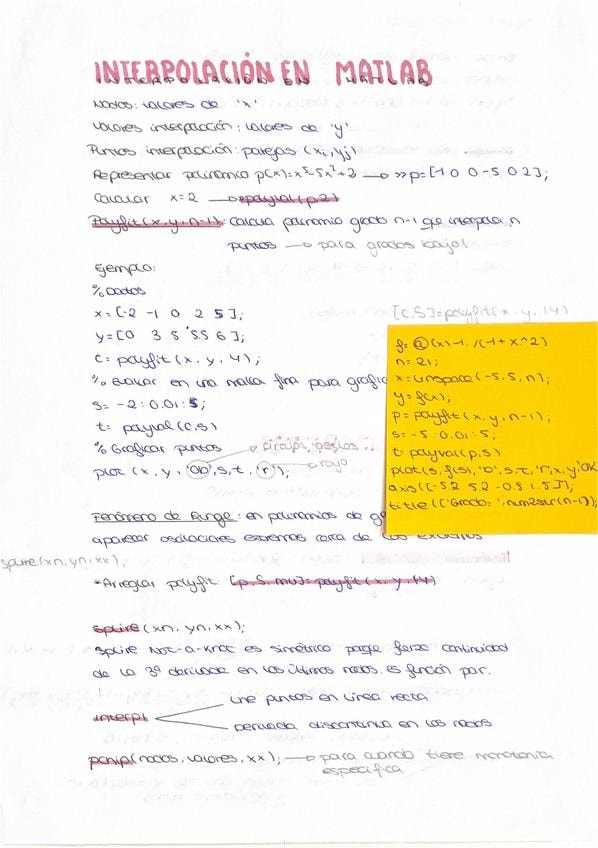 INTERPOLACIÓN EN MATLAB
Nodos: valores de 'x'
Valores interpolación: valores de 'y'
Puntos interpolación: parejas (xi, yj)
Representar polinomio p(x)=x⁵-5x²+2 → >>p=[1 0 0 -5 0 2];
Calcular x=2 → polyval(p,2)
Polyfit(x,y,n-1): Calcula polinomio grado n-1 que interpola n
puntos → para grados bajo!
Ejemplo:
% Datos
x=[-2 -1 0 2 5];
y=[0 3 5 5.5 6];
[C,S]=polyfit(x,y,14)
c=polyfit(x,y,4);
% Evaluar en una malla fina para grafic
s=-2:0.01:5;
t=polyval(c,s)
% Graficar puntos
plot(x,y,'ob',s,t,'r');
→ rojo
f=@(x)-1./(1+x.^2)
n=21;
x=linspace(-5,5,n);
y=f(x);
p=polyfit(x,y,n-1);
s=-5:0.01:5;
t=polyval(p,s)
plot(s,f(s),'b',s,t,'r',x,y,'ok'
axis([-5.2 5.2 -0.5 1.5]),
title(['Grado: ',num2str(n-1)]);
Fenómeno de Runge: en polinomios de g
aparecer oscilaciones extremas cerca de los extremos
spline(xn,yn,xx);
*Arreglar polyfit [p,S,mu]=polyfit(x,y,14)
spline(xn,yn,xx);
Spline Not-a-Knot es simétrico porque fuerza continuidad
de la 3ª derivada en los últimos nodos. es función par.
interp1
Une puntos en línea recta
Derivada discontinua en los nodos
pchip(nodos,valores,xx); → para cuando tiene monotonía
específica